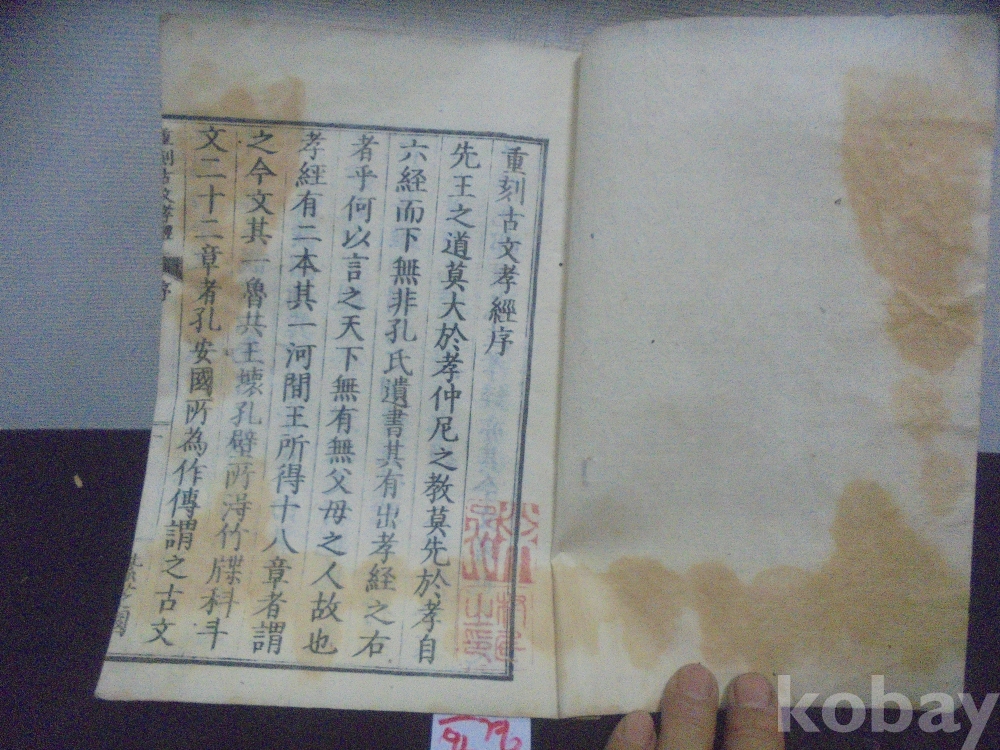 重刻古文孝經序
先王之道莫大於孝仲尼之教莫先於孝自
六経而下無非孔氏遺書其有出孝経之右
者乎何以言之天下無有無父母之人故也
孝経有二本其一河間王所得十八章者謂
之今文其一魯共王壊孔壁所得竹牒科斗
文二十二章者孔安國所為作傳謂之古文
重刻古文孝經
序
kobay